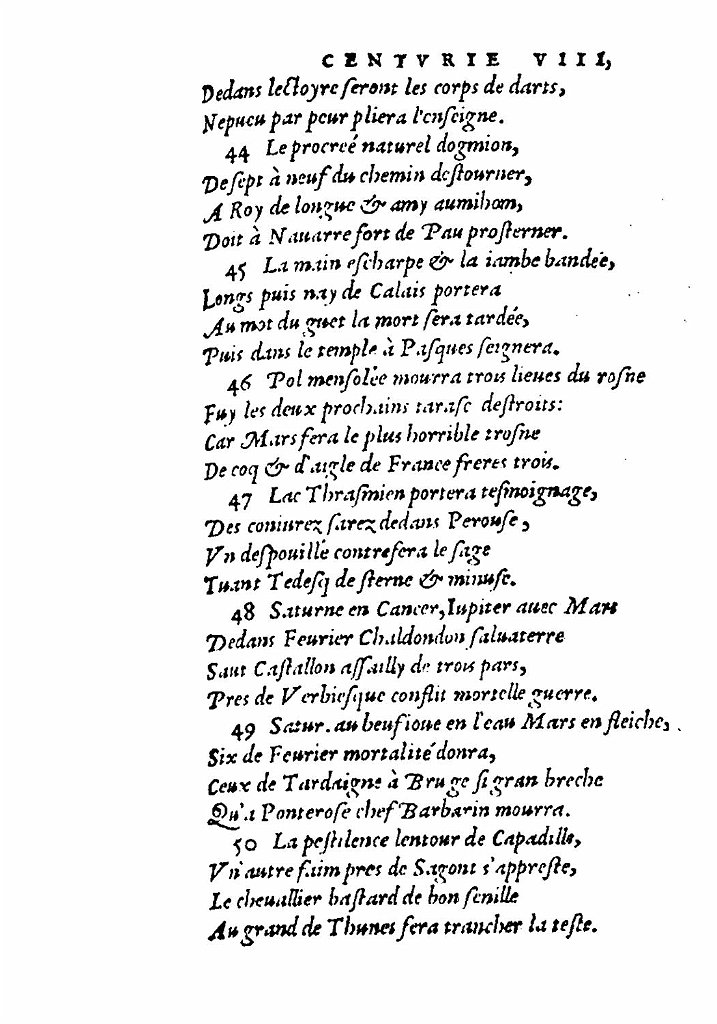 CENTVRIE VIII,
Dedans lectoyre seront les corps de darts,
Nepueu par peur pliera l'enseigne.
44 Le procreé naturel dogmion,
De sept à neuf du chemin destourner,
A Roy de longue & amy aumihom,
Doit à Nauarre fort de Pau prosterner.
45 La main escharpe & la iambe bandée,
Longs puis nay de Calais portera
Au mot du guet la mort sera tardée,
Puis dans le temple à Pasques seignera.
46 Pol mensolée mourra trois lieues du rosne
Fuy les deux prochains tarasc destrois:
Car Mars fera le plus horrible trosne
De coq & d'aigle de France freres trois.
47 Lac Thrasmien portera tesmoignage,
Des coniurez sarez dedans Perouse,
Vn despouillé contrefera le sage
Tuant Tedesq de sterne & minuse.
48 Saturne en Cancer, Iupiter auec Mars
Dedans Feurier Chaldondon saluaterre
Saut Castallon assailly de trois pars,
Pres de Verbiesque conflit mortelle guerre.
49 Satur. au beuf ioue en l'eau Mars en fleiche,
Six de Feurier mortalité donra,
Ceux de Tardaigne à Bruge si gran breche
Qu'a Ponterose chef Barbarin mourra.
50 La pestilence lentour de Capadille,
Vn'autre faim pres de Sagont s'appreste,
Le cheuallier bastard de bon senille
Au grand de Thunes fera trancher la teste.